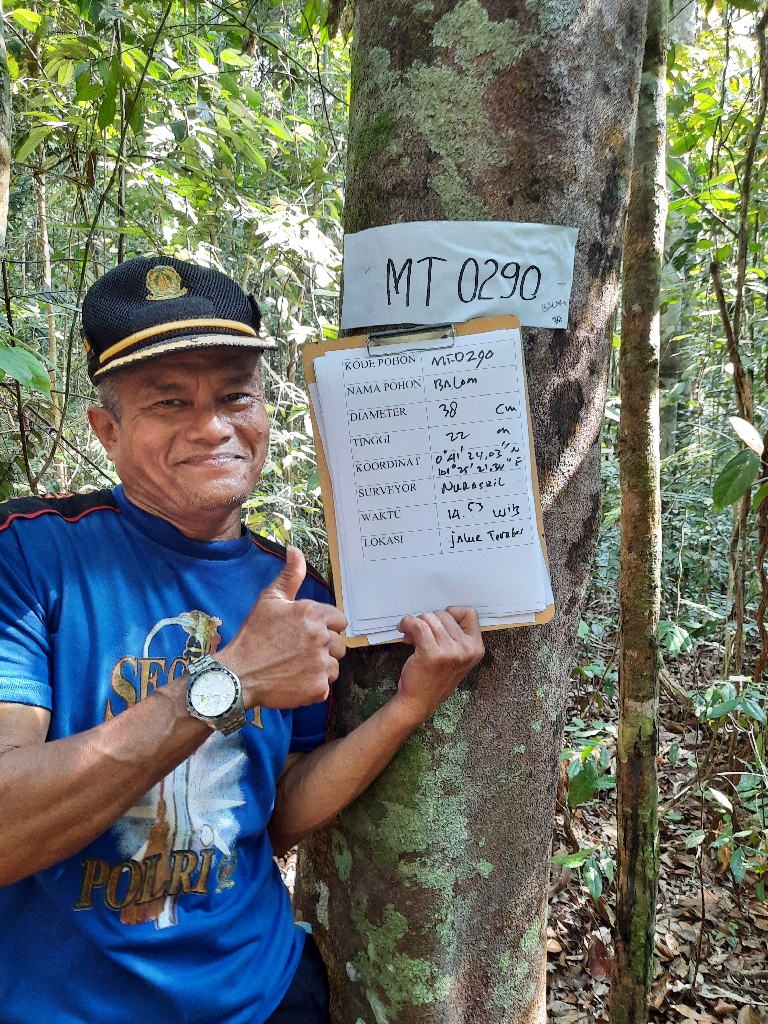 MT 0290
BALAM
38
KODE POHON MT-0290
NAMA POHON BALAM
DIAMETER 38 Cm
TINGGI 22 m
KOORDINAT 0°41'24,03"N
101°25'21,34"E
SURVEYOR
WAKTU 14.53 WIB
LOKASI Jalur
POLRI